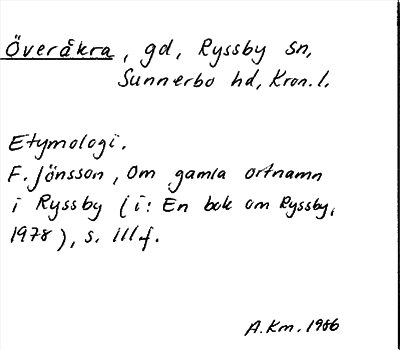 Överåkra, gd, Ryssby sn,
Sunnerbo hd, Kron. l.
Etymologi.
F. Jönsson, Om gamla ortnamn
i Ryssby (i: En bok om Ryssby,
1978), s. 111 f.
A.Km. 1986